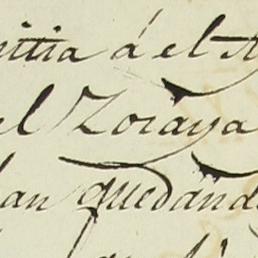 ittia á el A
el Zoraya
lan quedand